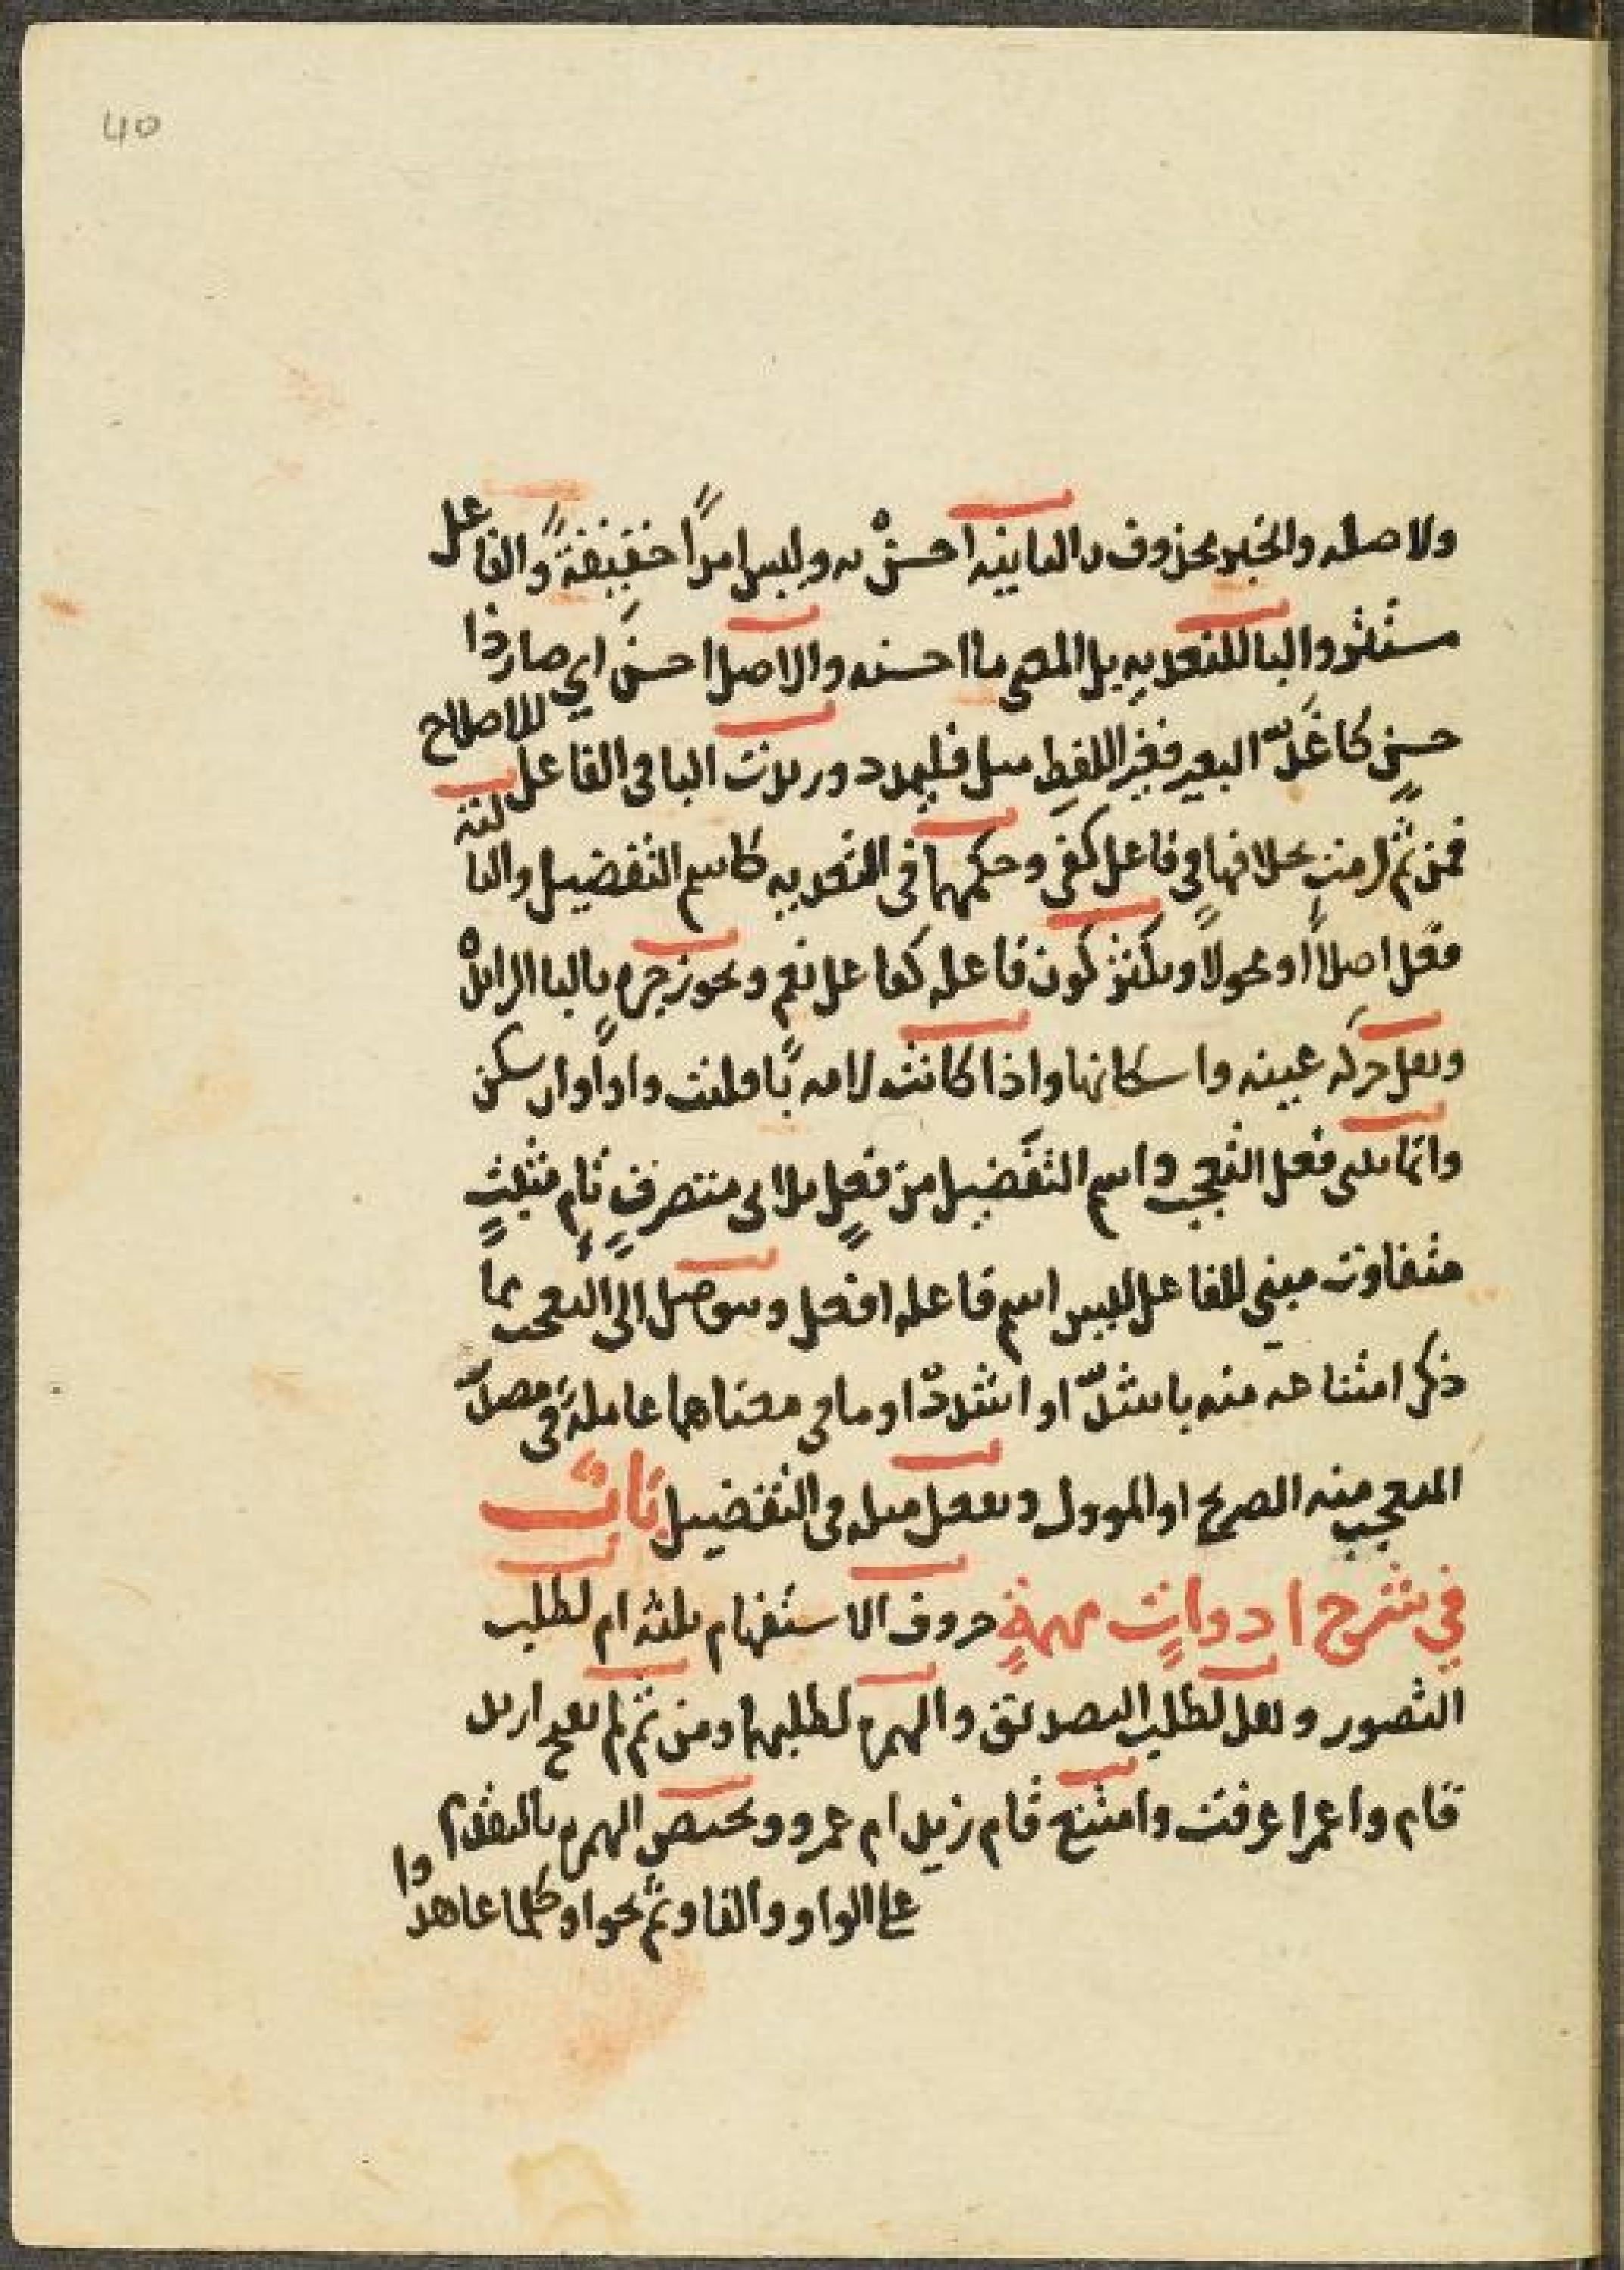 40
ولا صله والخبر محذوف الثانيه احسن به وليس امرًا حقيقةً والفاعل
مستتر والبا للتعديه بل المعنى ما احسنه والاصل احسن اي صار ذا
حسن كاغدّ البعير فغير اللفظ وزيدت البا في الفاعل للاصلاح
فمن ثم لزمت بخلافها في فاعل كفى وحكمهما في التعديه كاسم التفضيل والثالثه
فعل اصلاً او محولاً ويكثر كون فاعله كفاعل نعم ويجوز جره بالبا الزائده
ونقل حركه عينه واسكانها واذا كانت لامه يًا قلبت واوًا وان سكن
وانما يبنى فعل التعجب واسم التفضيل من فعل ثلاثي متصرفٍ تامٍ مثبتٍ
متفاوت مبني للفاعل ليس اسم فاعله افعل ويتوصل الى التعجب مما
ذكر امتناعه منه باشدّ او اشددْ او ما في معناهما عاملةً في مصدر
المتعجب منه الصريح او الموول ويفعل مثله في التفضيل باب
في شرح ادواتٍ مهمةٍ حروف الاستفهام ثلثه ام لطلب
التصور وهل لطلب التصديق والهمزه لطلبهما ومن ثم لم يقبح ازيد
قام واعمرا عرفت وامتنع قام زيد ام عمرو ويختص الهمزه بالتقدم
على الواو والفا وثم نحو اوكلما عاهدوا